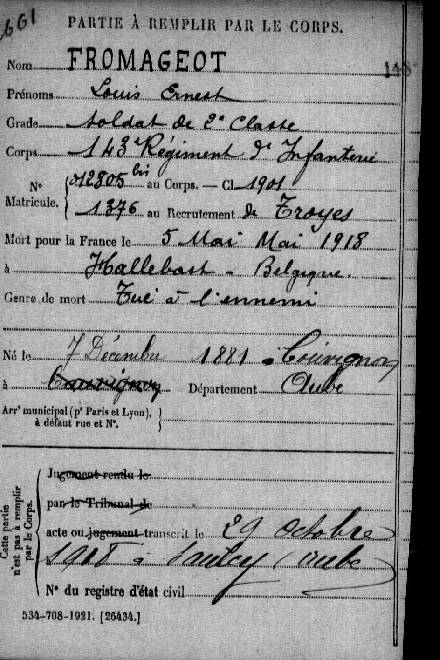 661
PARTIE À REMPLIR PAR LE CORPS.
Nom FROMAGEOT
Prénoms Louis Ernest
Grade Soldat de 2e Classe
Corps 143e Régiment d'Infanterie
N° Matricule. 12805 bis au Corps. — Cl. 1901
1376 au Recrutement de Troyes
Mort pour la France le 5 Mai Mai 1918
à Hallebast - Belgique.
Genre de mort Tué à l'ennemi
Né le 7 Décembre 1881 à Couvignon
à Couvignon Département Aube
Arrt municipal (pr Paris et Lyon), à défaut rue et N°.
Cette partie n'est pas à remplir par le Corps.
Jugement rendu le
par le Tribunal de
acte ou jugement transcrit le 29 octobre
Aube
N° du registre d'état civil
534-708-1921. [26434.]